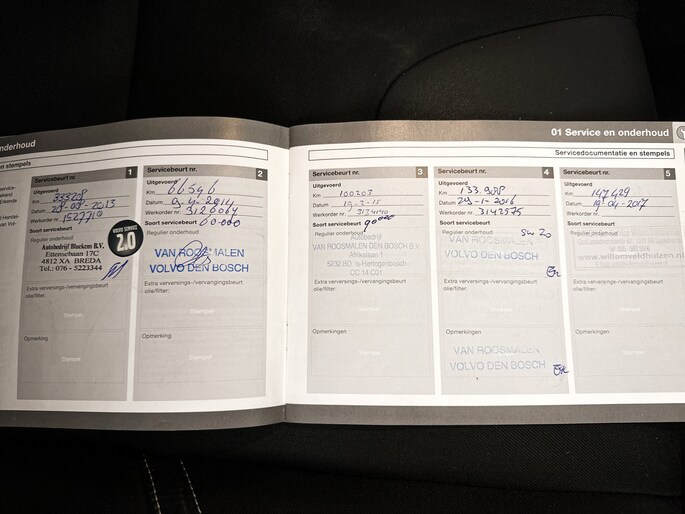 nderhoud
en stempels
Servicebeurt nr. 1
Uitgevoerd
Km 33328
Datum
Werkorder nr. 1527710
Soort servicebeurt
Regulier onderhoud
VOLVO SERVICE
2.0
Autobedrijf Bluekens B.V.
Ettensebaan 17C
4812 XA BREDA
Tel.: 076 - 5223344
Extra verversings-/vervangingsbeurt
olie/filter:
Stempel
Opmerking
Stempel
Servicebeurt nr. 2
Uitgevoerd
Km 66546
Datum 9-4-2014
Werkorder nr. 3126064
Soort servicebeurt 60.000
Regulier onderhoud
VAN ROOSMALEN
VOLVO DEN BOSCH
Extra verversings-/vervangingsbeurt
olie/filter:
Stempel
Opmerking
Stempel
01 Service en onderhoud
Servicedocumentatie en stempels
Servicebeurt nr. 3
Uitgevoerd
Km 100203
Datum
Werkorder nr.
Soort servicebeurt
Regulier onderhoud
Autobedrijf
VAN ROOSMALEN DEN BOSCH B.V.
Afrikalaan 1
5232 BD 's-Hertogenbosch
Extra verversings-/vervangingsbeurt
olie/filter:
Stempel
Opmerkingen
Stempel
Servicebeurt nr. 4
Uitgevoerd
Km 133.988
Datum 29-1-2016
Werkorder nr. 3142575
Soort servicebeurt
Regulier onderhoud
VAN ROOSMALEN
VOLVO DEN BOSCH
Extra verversings-/vervangingsbeurt
olie/filter:
Stempel
Opmerkingen
VAN ROOSMALEN
VOLVO DEN BOSCH
Servicebeurt nr. 5
Uitgevoerd
Km 147429
Datum 19-04-2017
Werkorder nr.
Soort servicebeurt
Regulier onderhoud
www.willomveldhuizen.nl
Extra verversings-/vervangingsbeurt
olie/filter:
Stempel
Opmerkingen
Stempel